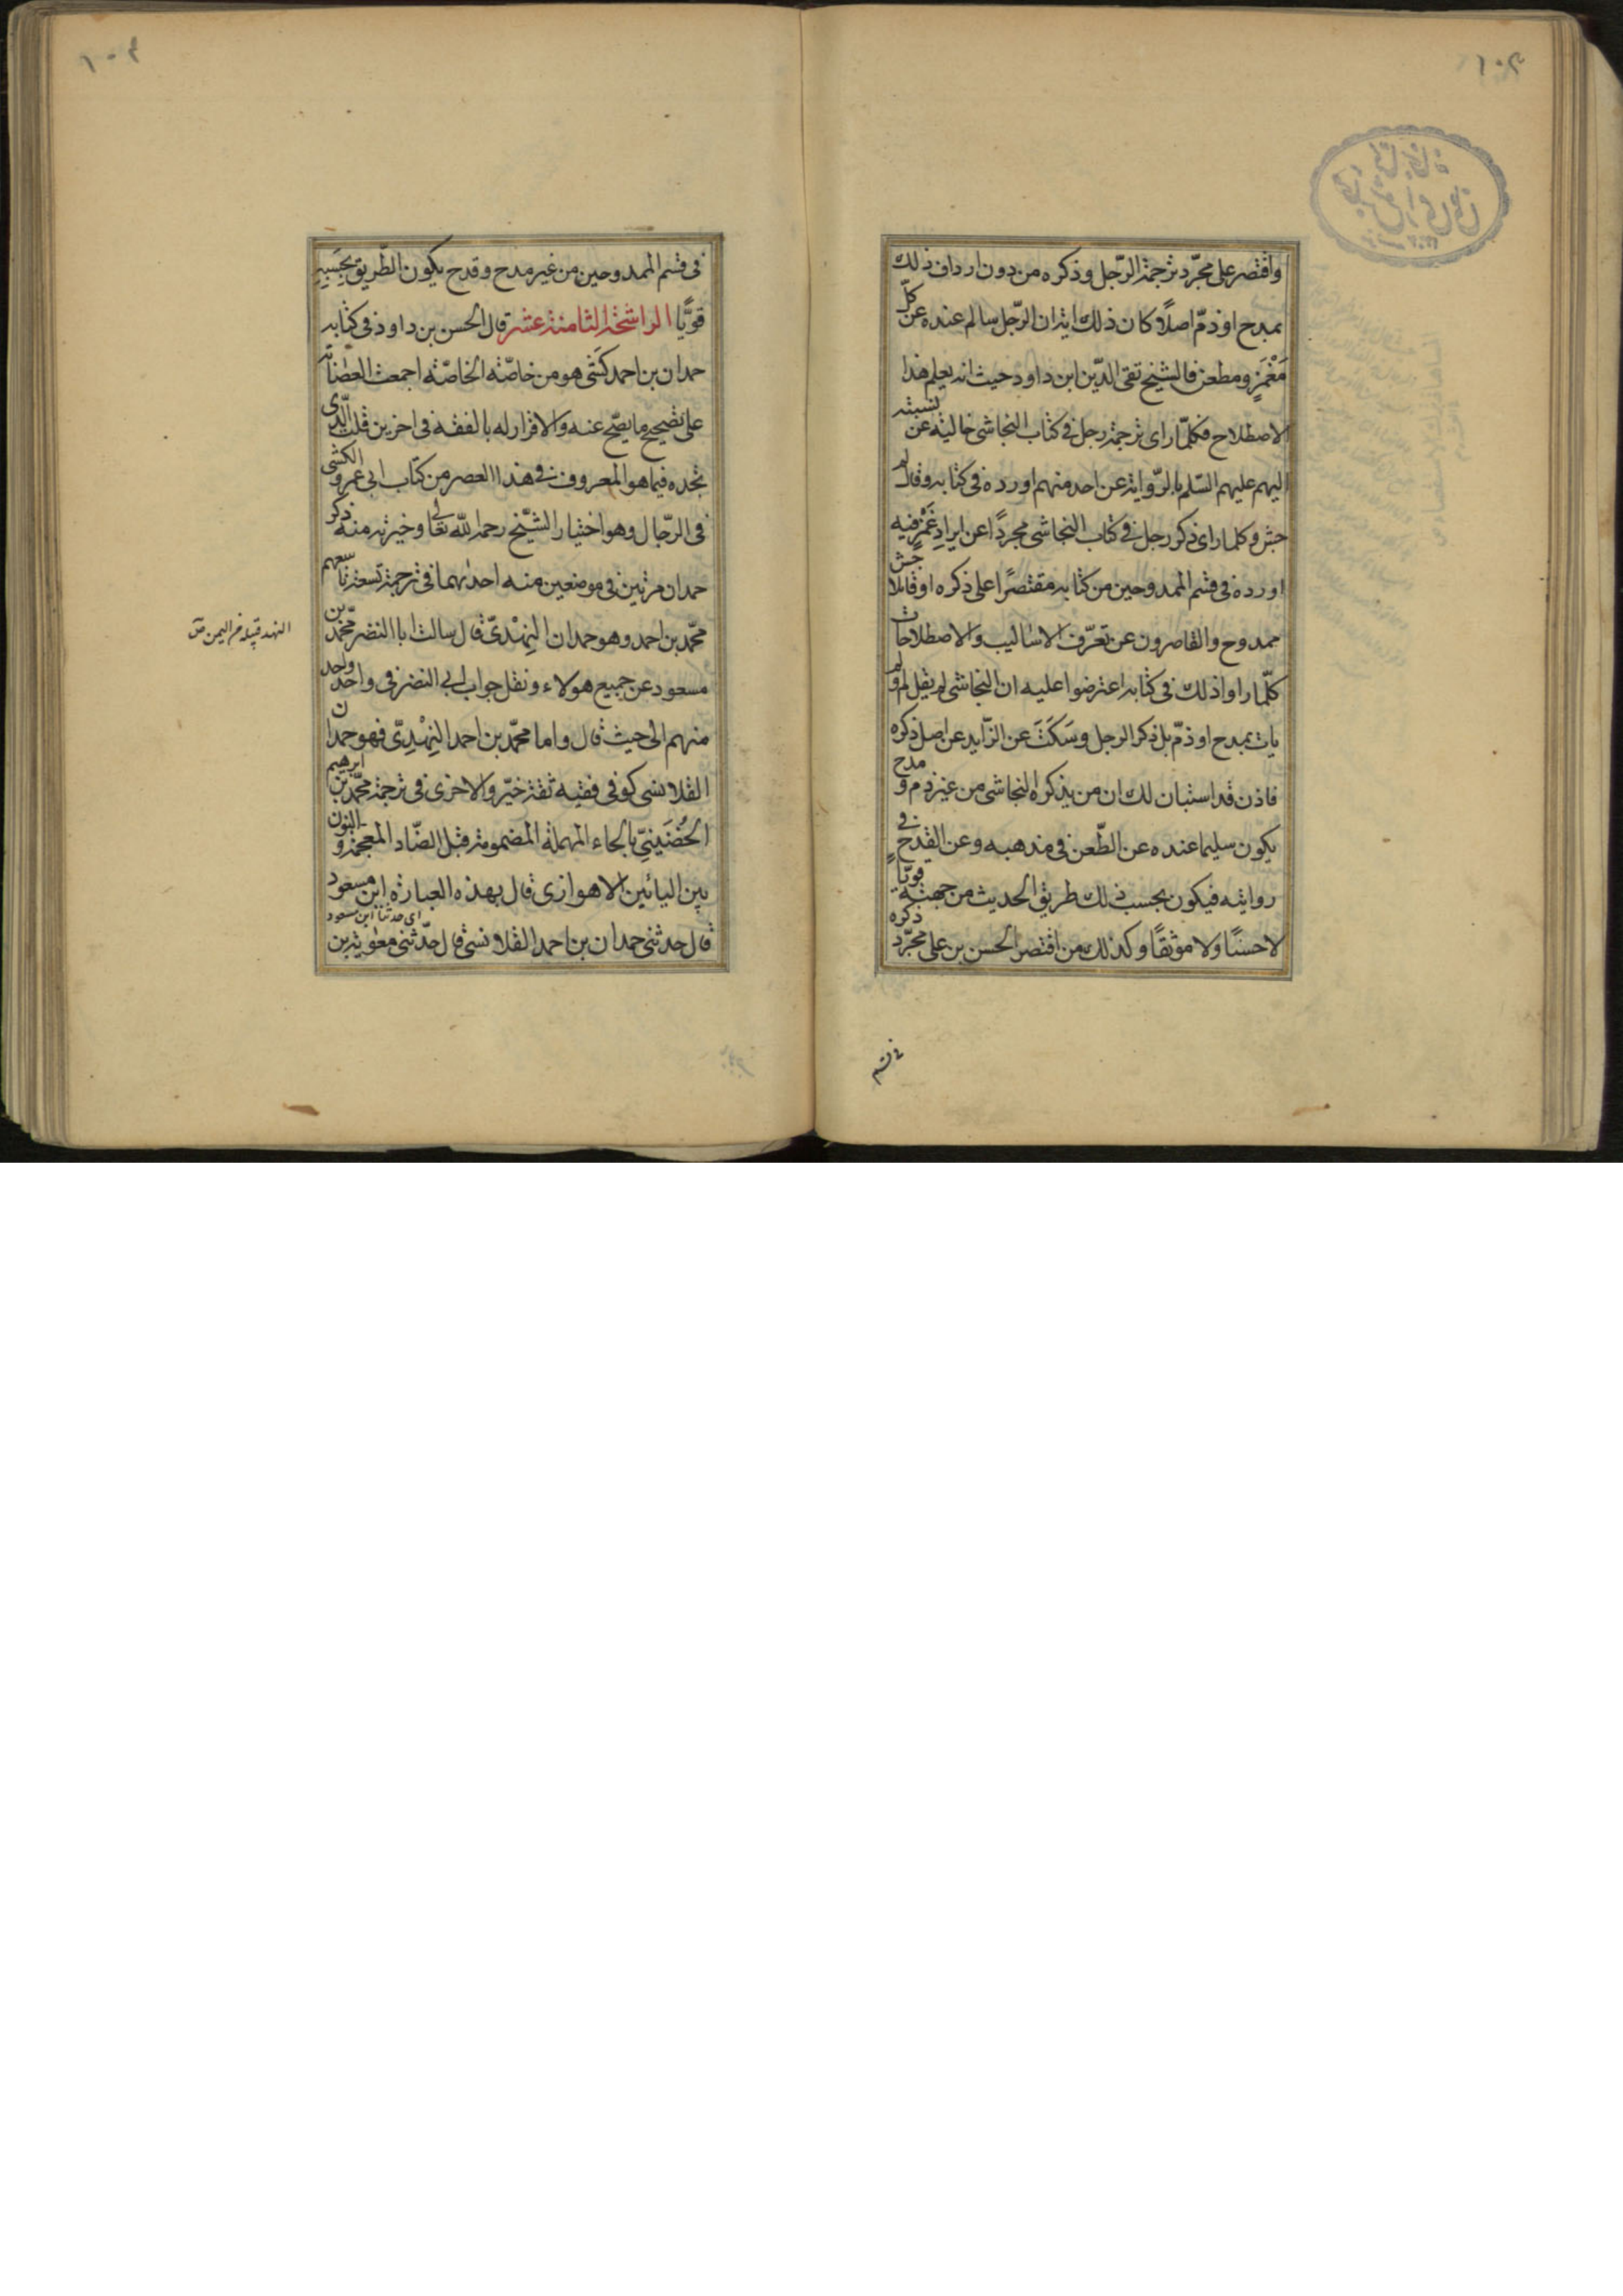 واقتصر على مجرّد ترجمة الرّجل وذكره من دون ارداف ذلك
بمدح او ذمّ اصلاً كان ذلك اية ان الرّجل سالم عنده عن كلّ
مَغْمَزٍ ومطعن فالشيخ تقى الدّين ابن داود حيث انه يعلم هذا
الاصطلاح فكلّما راى ترجمة رجل فى كتاب النجاشى خالية عن نسبته
اليهم عليهم السّلم بالرّواية عن احد منهم اورده فى كتابه وقال لم
جش وكلما راى ذكر رجل فى كتاب النجاشى مجردًا عن ايرادِ غَمْزٍ فيه
اورده فى قسم الممدوحين من كتابه مقتصرًا على ذكره او قايلا جش
ممدوح والقاصرون عن تعرّف الاساليب والاصطلاحات
كلّما راوا ذلك فى كتابه اعترضوا عليه ان النجاشى لم يقل لم ولم
يات بمدح او ذمّ بل ذكر الرجل وسَكَتَ عن الزّايد عن اصل ذكره
فاذن قد استبان لك ان من يذكره النجاشى من غير ذم و مدح
يكون سليما عنده عن الطّعن فى مذهبه وعن القدح فى
روايته فيكون بحسب ذلك طريق الحديث من جهته قويّاً
لا حسنًا ولا موثقًا وكذلك من اقتصر الحسن بن على مجرّد ذكره
فى قسم
فى قسم الممدوحين من غير مدح وقدح يكون الطّريق بحسبِهِ
قويًّا الراشحة الثامنة عشر قال الحسن بن داود فى كتابه
حمدان بن احمد كَشّى هو من خاصّة الخاصّة اجمعت العصابة
على تصحيح ما يصّح عنه والاقرار له بالفقه فى اخرين قلت الّذى
نجده فيما هو المعروف فى هذا العصر من كتاب ابى عمرو الكشى
فى الرّجال وهو اختيار الشّيخ رحمه الله تعالى وخيرته منه ذكر
حمدان مرتين فى موضعين منه احدٰيهما فى ترجمة تسعة تاسعهم
محّمد بن احمد وهو حمدان النِهْدىّ قال سالت ابا النضر محّمد بن
مسعود عن جميع هولاء ونقل جواب ابى النضر فى واحد واحد
منهم الى حيث قال واما محمّد بن احمد النِهْدِىّ فهو حمدان
القلانسى كوفى فقيه ثقة خيّر والاخرى فى ترجمة محّمد بن ابرهيم
الحُضَينِيّ بالحاء المهملة المضمومة قبل الضّاد المعجمة والنون
بين اليائين الاهوازى قال بهذه العبارة ابن مسعود
اى حدثنا ابن مسعود
قال حدثنى حمدان بن احمد القلانسىّ قال حدّثنى معٰوية بن
النهد قبيلة من اليمن ص